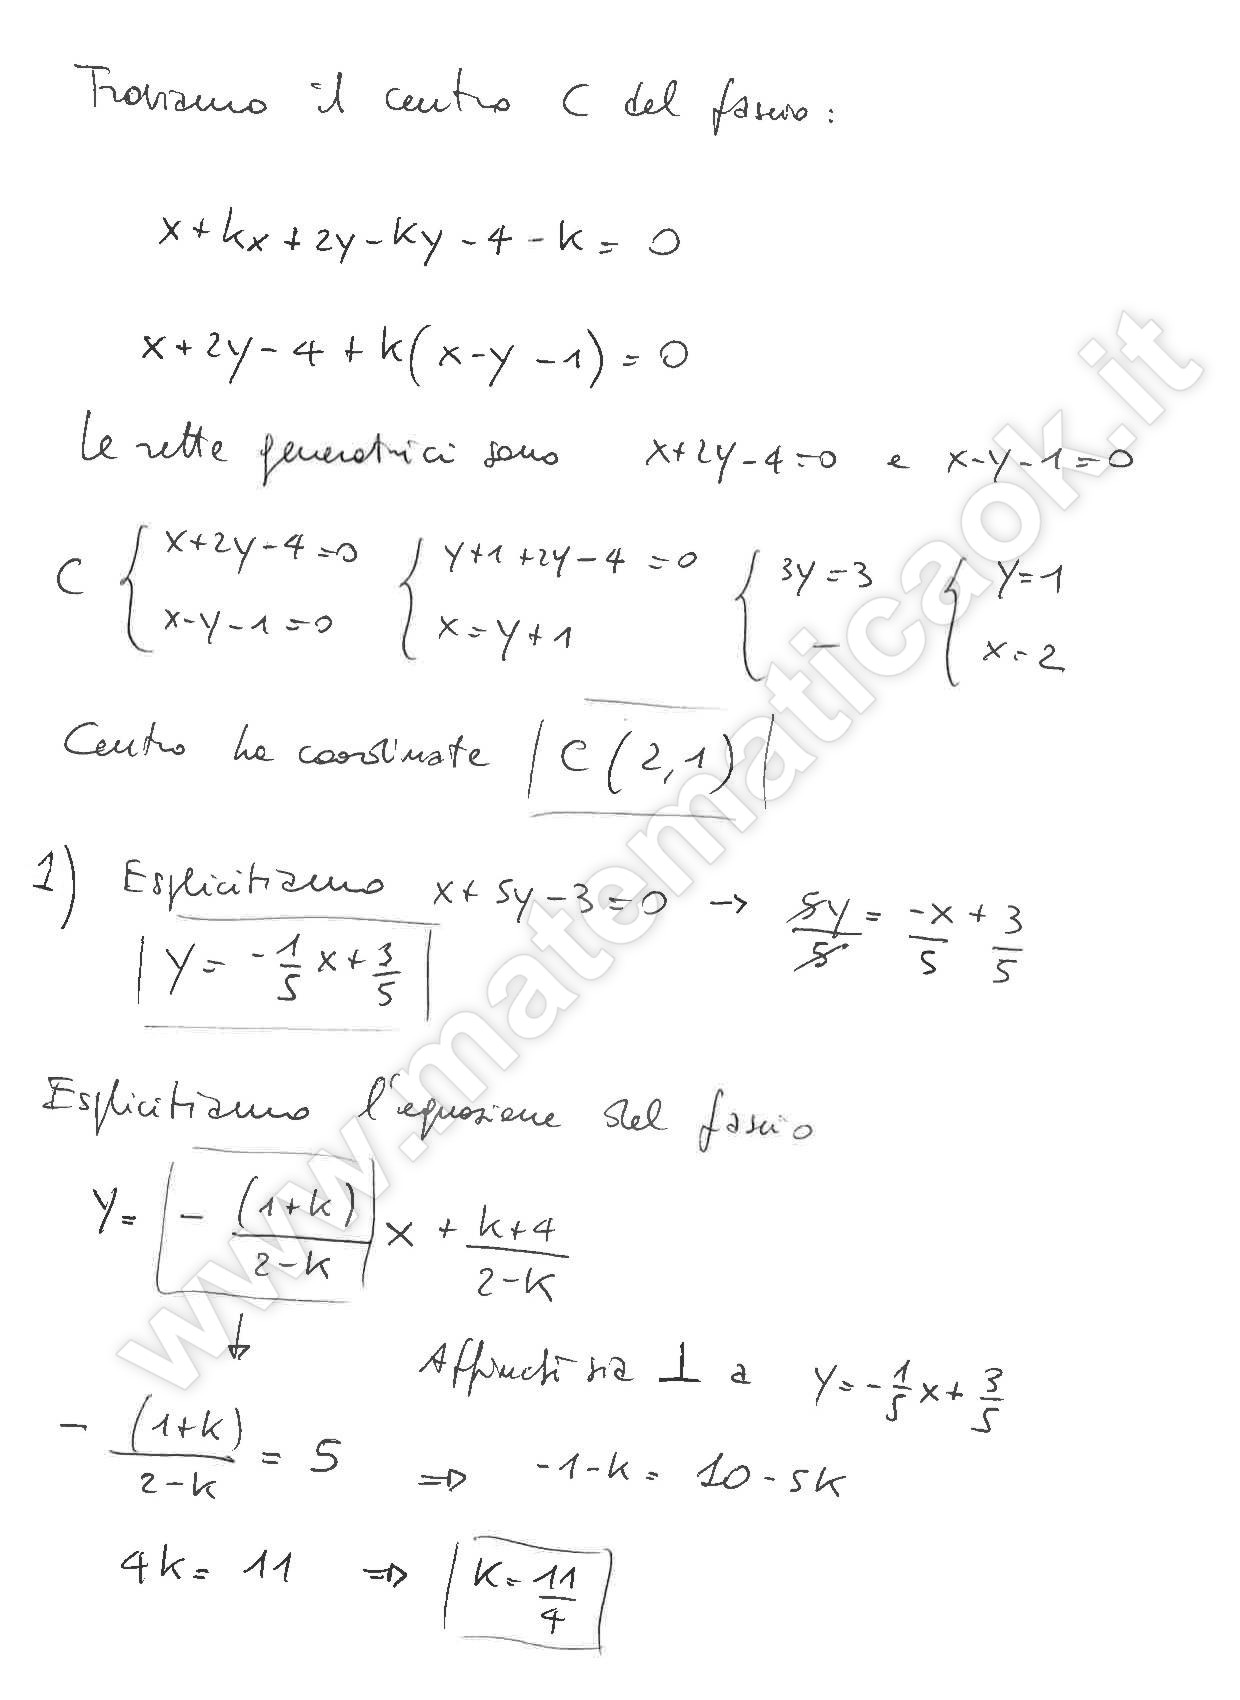 Troviamo il centro C del fascio:
x+kx+2y-ky-4-k=0
x+2y-4+k(x-y-1)=0
Le rette generatrici sono x+2y-4=0 e x-y-1=0
C { x+2y-4=0 { y+1+2y-4=0 { 3y=3 { y=1
x-y-1=0 x=y+1 — x=2
Centro ha coordinate C(2,1)
1) Esplicitiamo x+5y-3=0 → 5y/5 = -x/5 + 3/5
y = -1/5 x + 3/5
Esplicitiamo l'equazione del fascio
y = - (1+k)/(2-k) x + (k+4)/(2-k)
↓
Affinché sia ⊥ a y = -1/5 x + 3/5
- (1+k)/(2-k) = 5 ⇒ -1-k = 10-5k
4k = 11 ⇒ k = 11/4
www.matematicaok.it